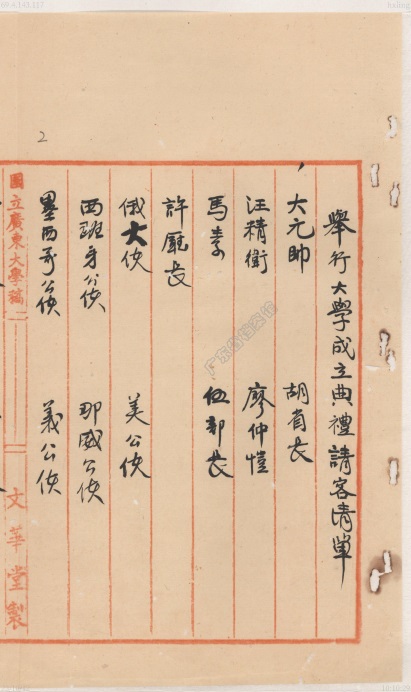 舉行大學成立典禮請客清單
大元帥 胡省長
汪精衛 廖仲愷
馬素 伍部長
許廳長
俄大使 美公使
西班牙公使 那威公使
墨西哥公使 義公使
國立廣東大學稿 二
文華堂製
2